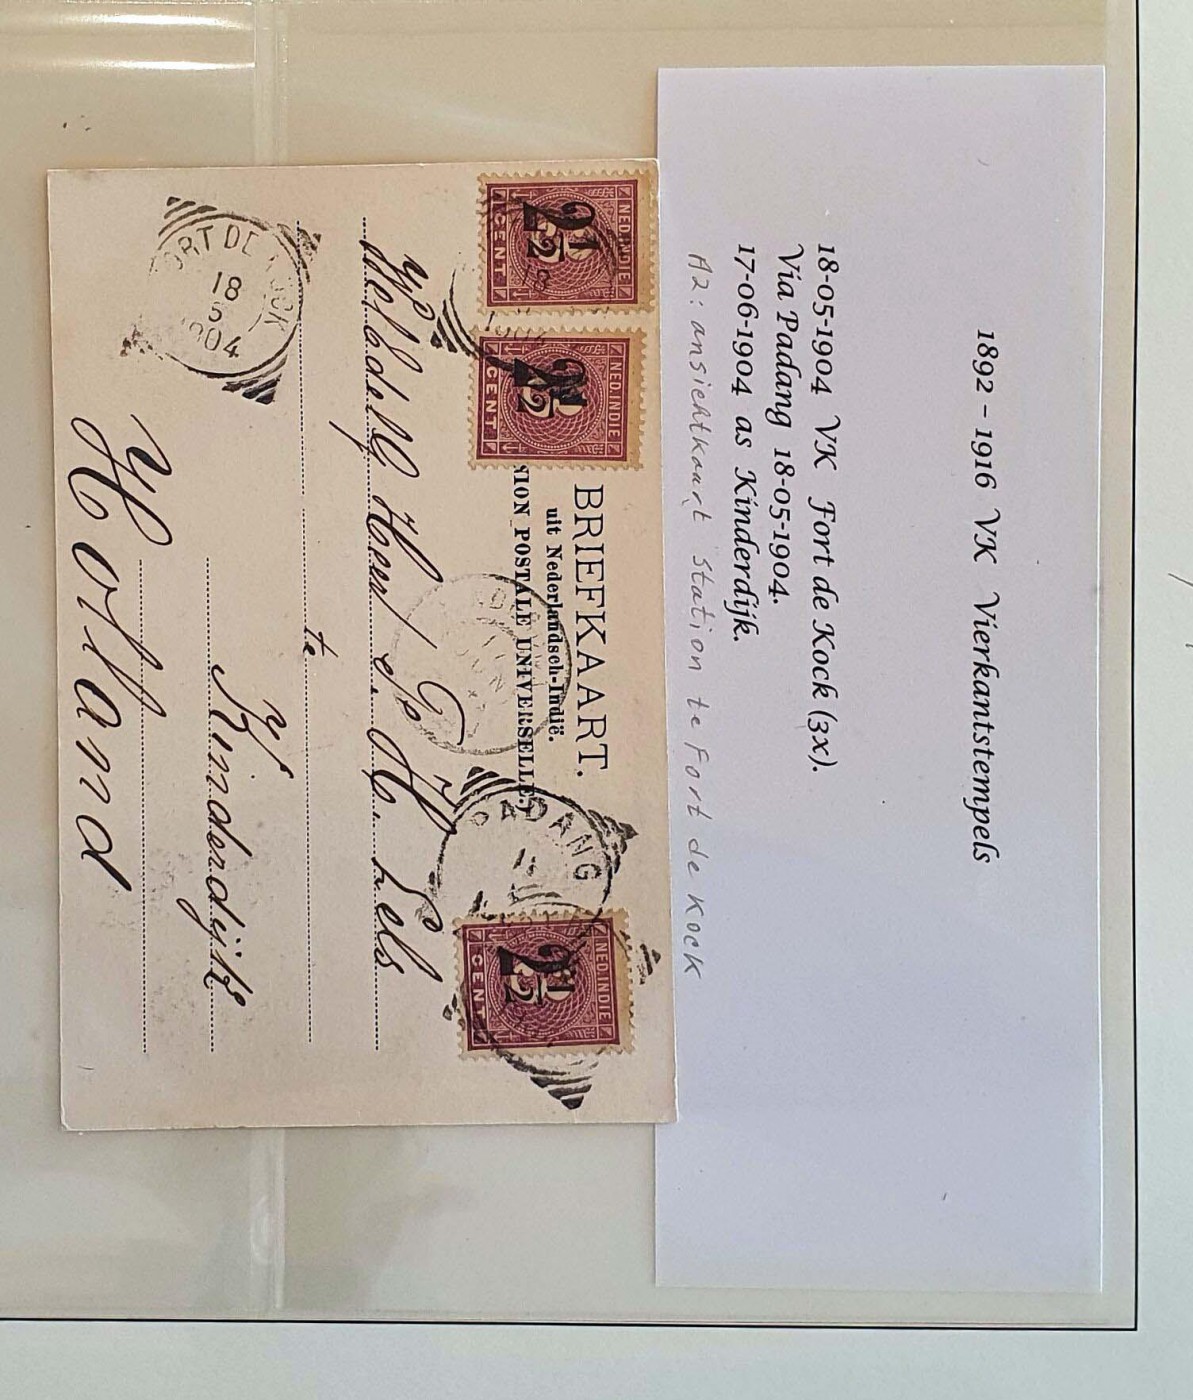 1892 – 1916 VK Vierkantstempels
18-05-1904 VK Fort de Kock (3x).
Via Padang 18-05-1904.
17-06-1904 as Kinderdijk.
A2: ansichtkaart station te Fort de Kock
BRIEFKAART.
uit Nederlandsch-Indië.
ION POSTALE UNIVERSELLE.)
NED.INDIE
2½
CENT
NED.INDIE
2½
CENT
NED.INDIE
2½
CENT
PADANG
ORT DE OCK
18
5
1904
Heer
te
Kinderdijk
Holland